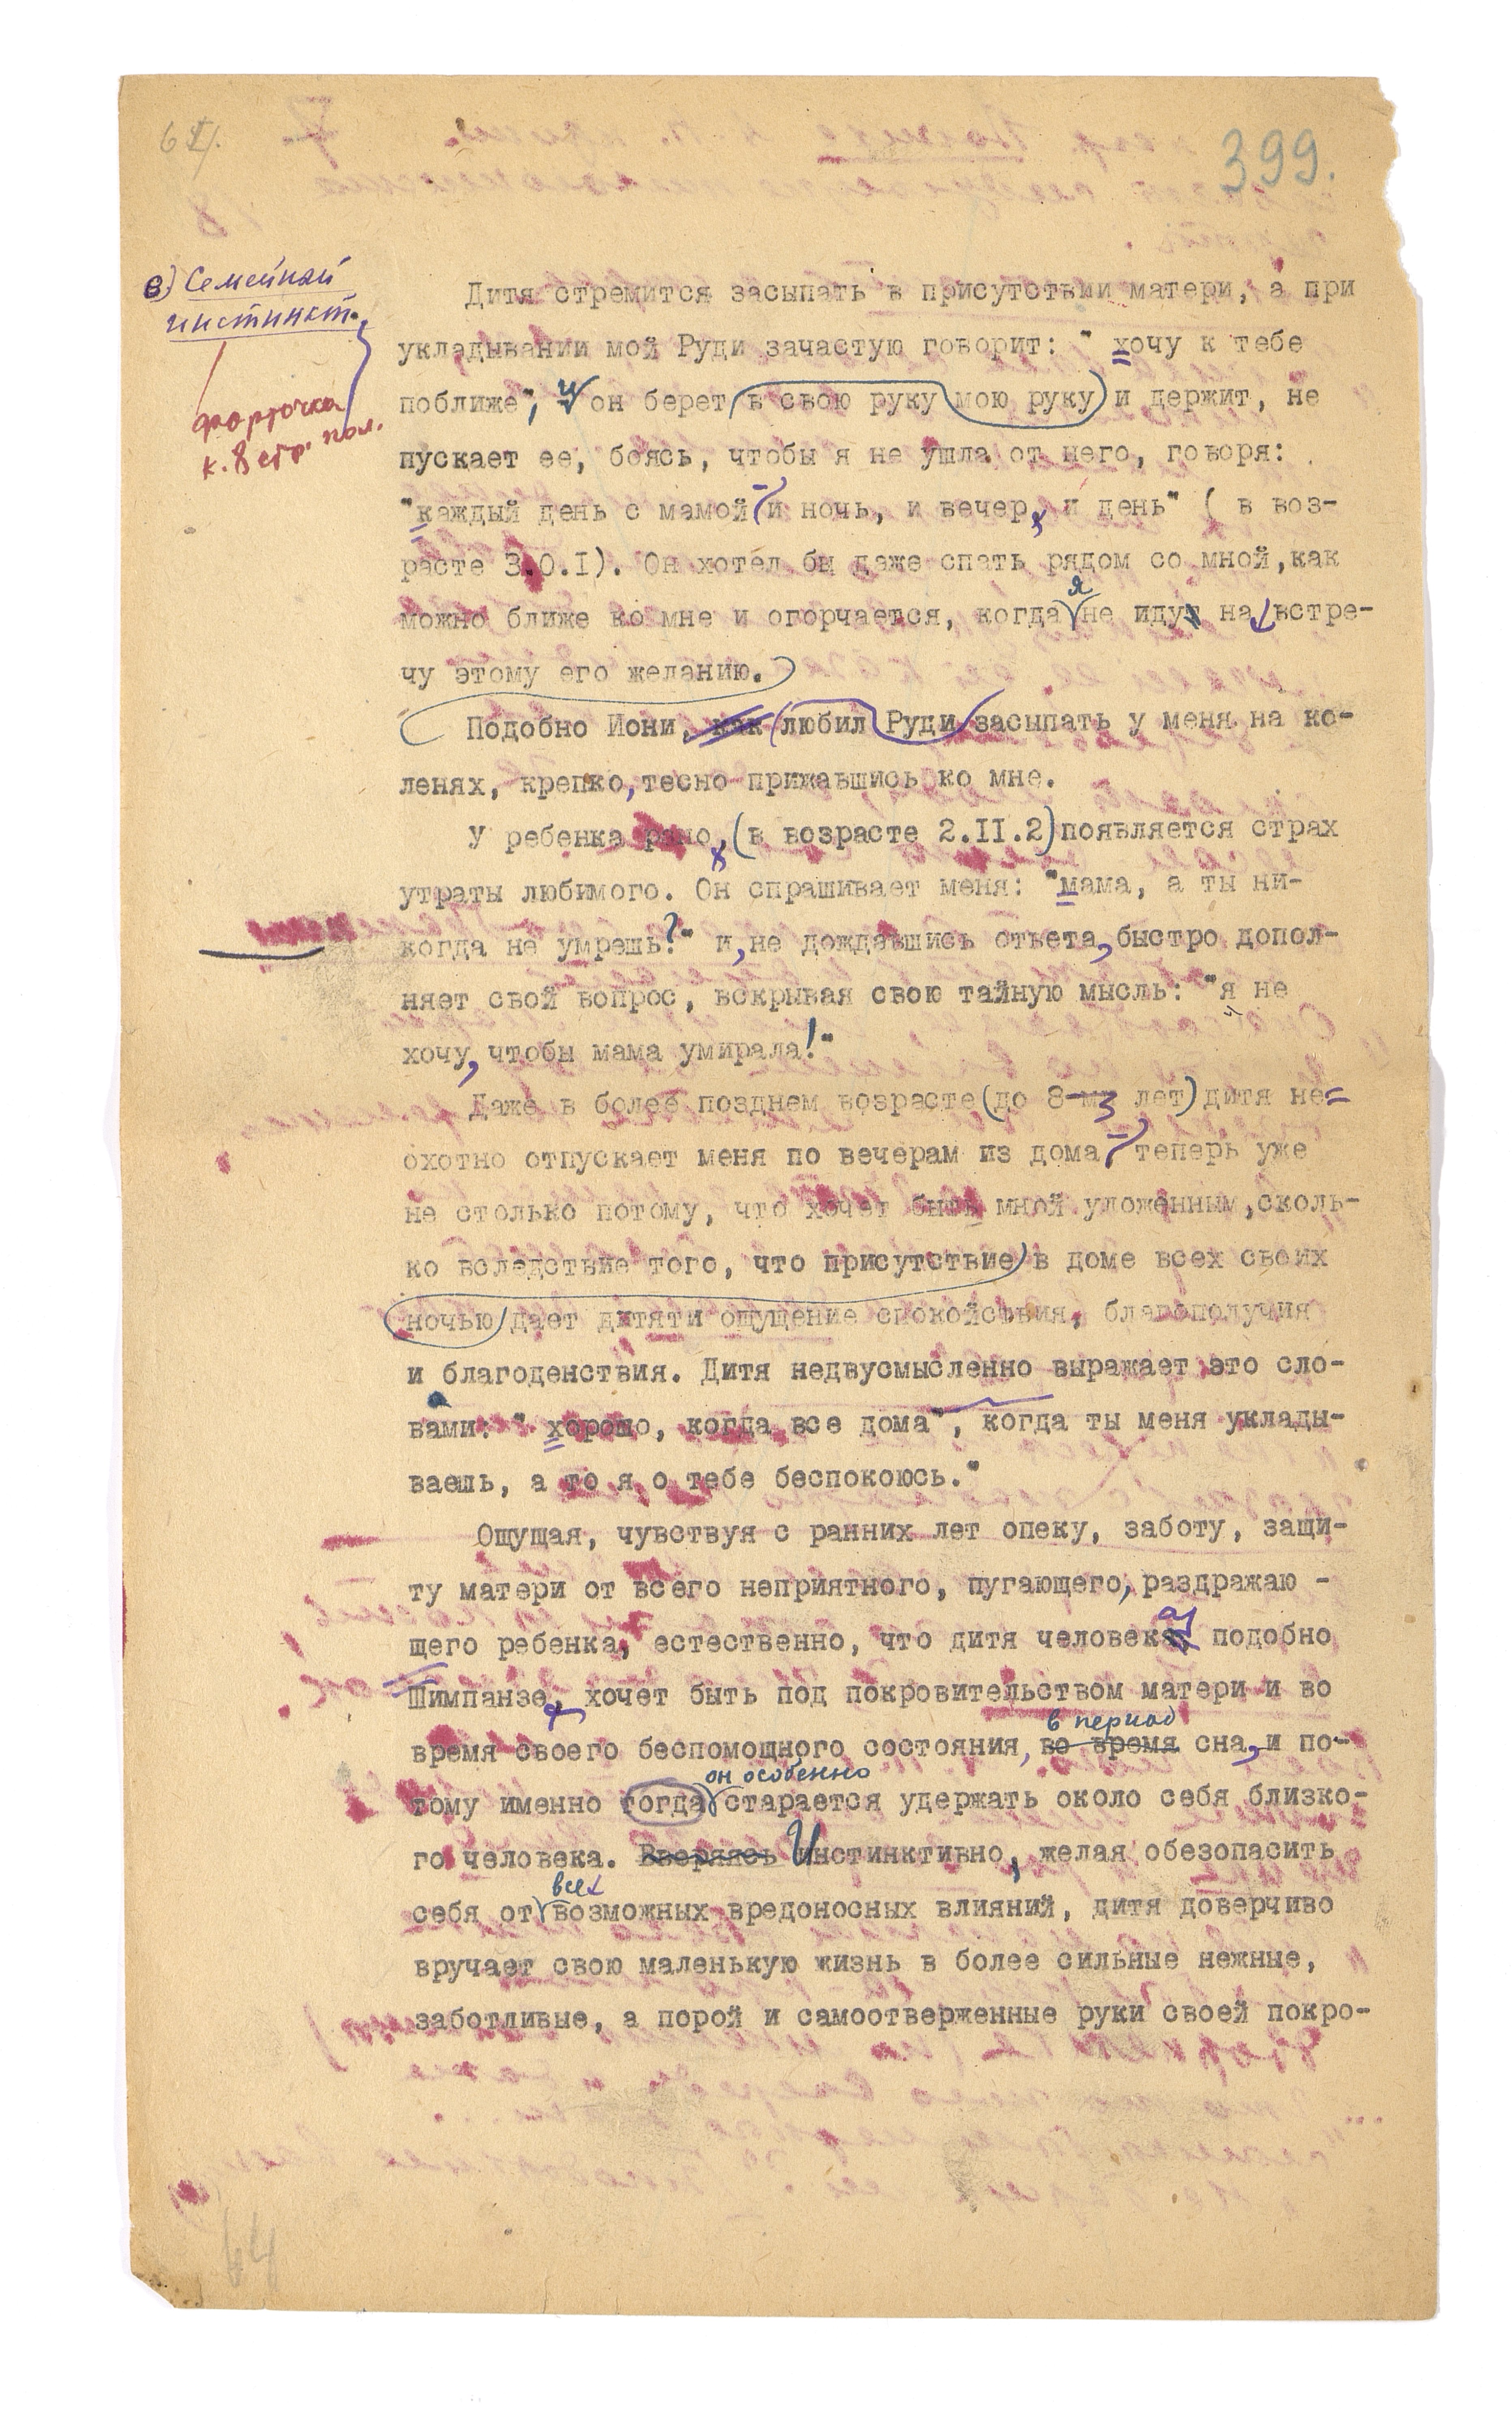 399.
в) Семейный
инстинкт.
форточка
к. 8 стр. пол.
Дитя стремится засыпать в присутствии матери, а при
укладывании мой Руди зачастую говорит: " хочу к тебе
поближе", и он берет в свою руку мою руку и держит, не
пускает ее, боясь, чтобы я не ушла от него, говоря:
"каждый день с мамой – и ночь, и вечер, и день" ( в воз-
расте 3.0.I). Он хотел бы даже спать рядом со мной, как
можно ближе ко мне и огорчается, когда я не иду на встре-
чу этому его желанию.
Подобно Иони, как любил Руди засыпать у меня на ко-
ленях, крепко, тесно прижавшись ко мне.
У ребенка рано, (в возрасте 2.II.2) появляется страх
утраты любимого. Он спрашивает меня: "мама, а ты ни-
когда не умрешь?" и, не дождавшись ответа, быстро допол-
няет свой вопрос, вскрывая свою тайную мысль: "я не
хочу, чтобы мама умирала!"
Даже в более позднем возрасте (до 8-ми лет) дитя не=
охотно отпускает меня по вечерам из дома – теперь уже
не столько потому, что хочет быть мной уложенным, сколь-
ко вследствие того, что присутствие в доме всех своих
ночью дает дитяти ощущение спокойствия, благополучия
и благоденствия. Дитя недвусмысленно выражает это сло-
вами: " хорошо, когда все дома", когда ты меня уклады-
ваешь, а то я о тебе беспокоюсь."
Ощущая, чувствуя с ранних лет опеку, заботу, защи-
ту матери от всего неприятного, пугающего, раздражаю -
щего ребенка, естественно, что дитя человека, подобно
Шимпанзе, хочет быть под покровительством матери и во
в период
время своего беспомощного состояния, во время сна, и по-
он особенно
тому именно тогда старается удержать около себя близко-
го человека. Вверяясь Инстинктивно, желая обезопасить
всех
себя от возможных вредоносных влияний, дитя доверчиво
вручает свою маленькую жизнь в более сильные нежные,
заботливые, а порой и самоотверженные руки своей покро-
64